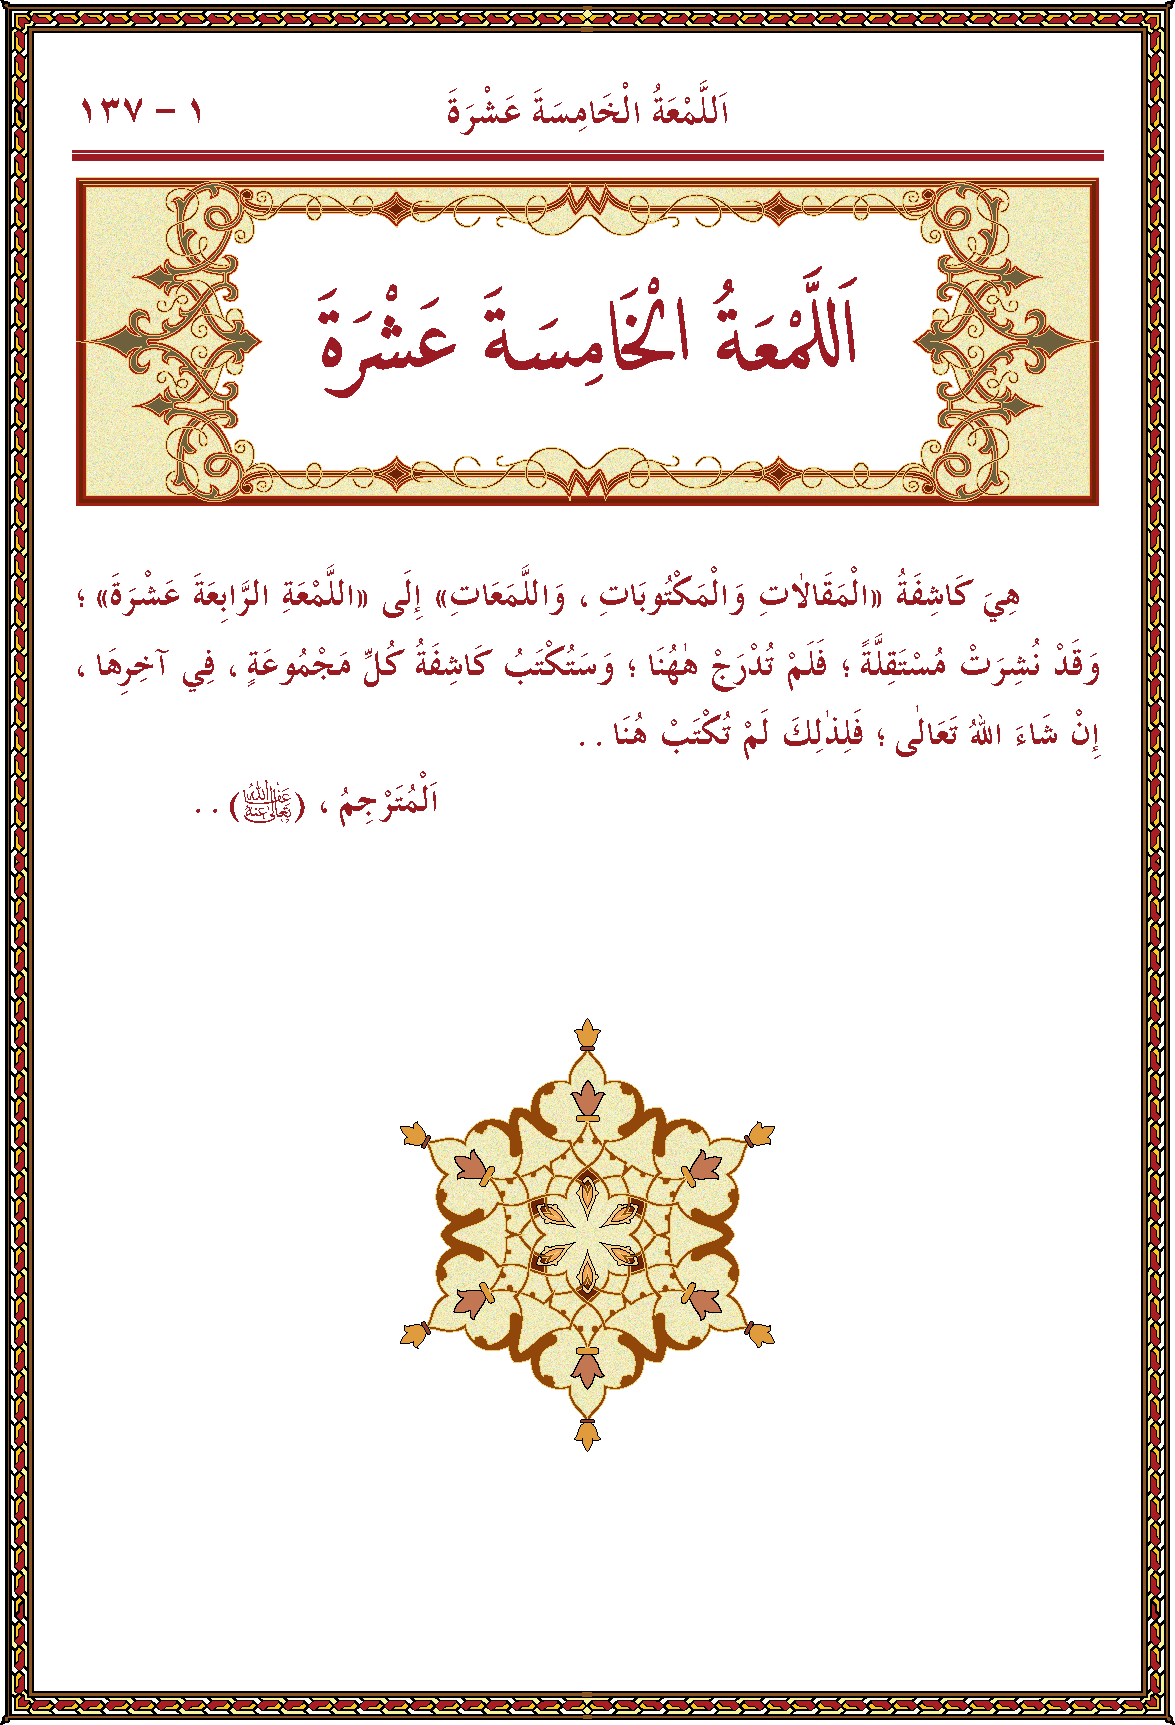 اَللَّمْعَةُ الْخَامِسَةَ عَشْرَةَ ١ – ١٣٧
اَللَّمْعَةُ الْخَامِسَةَ عَشْرَةَ
هِيَ كَاشِفَةُ «الْمَقَالَاتِ وَالْمَكْتُوبَاتِ ، وَاللَّمَعَاتِ» إِلَى «اللَّمْعَةِ الرَّابِعَةَ عَشْرَةَ» ؛
وَقَدْ نُشِرَتْ مُسْتَقِلَّةً ؛ فَلَمْ تُدْرَجْ هٰهُنَا ؛ وَسَتُكْتَبُ كَاشِفَةُ كُلِّ مَجْمُوعَةٍ ، فِي آخِرِهَا ،
إِنْ شَاءَ اللهُ تَعَالٰى ؛ فَلِذٰلِكَ لَمْ تُكْتَبْ هُنَا . .
اَلْمُتَرْجِمُ ، (عفا الله تعالى عنه) . .